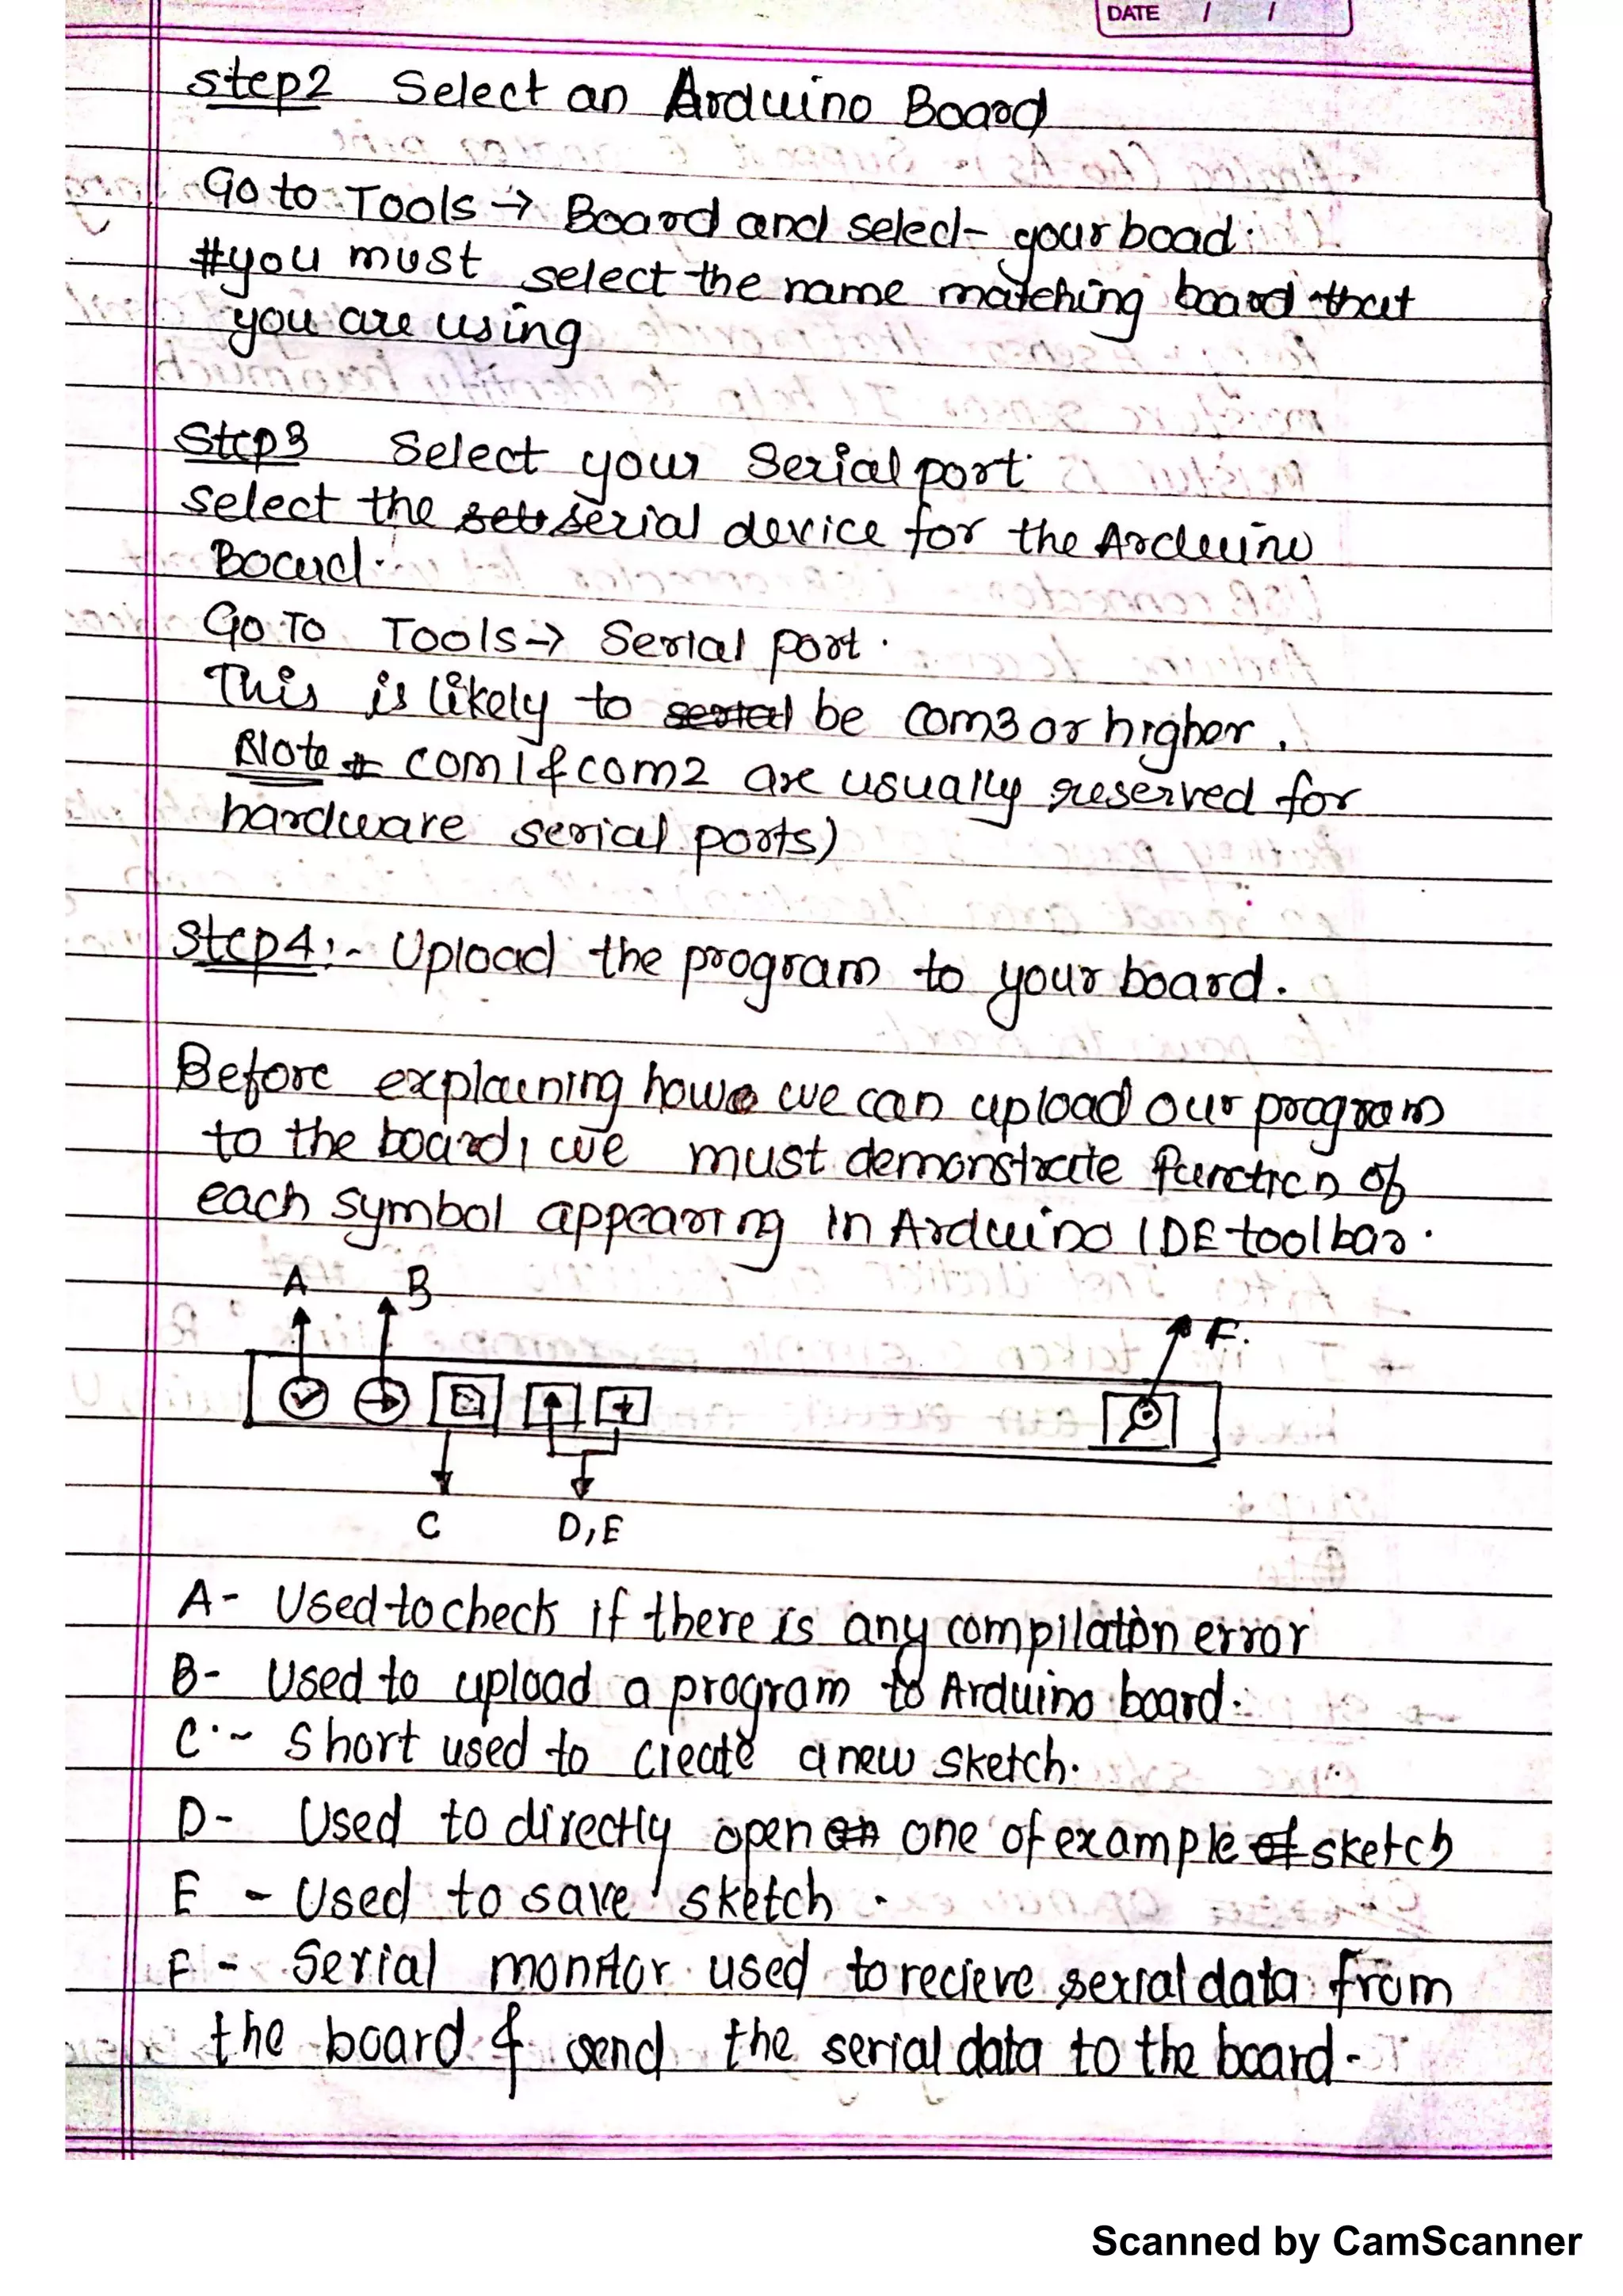 DATE / /
Step2 Select an Arduino Board
Go to Tools → Board and select your boad.
#you must select the name matching board that
you are using
Step3 Select your Serial port
select the serial device for the Arduino
Board.
Go To Tools → Serial port.
This is likely to be com3 or higher.
Note com1 & com2 are usually reserved for
hardware serial ports)
Step4:- Upload the program to your board.
Before explaining how we can upload our program
to the board, we must demonstrate function of
each symbol appearing in Arduino IDE toolbar.
A B
F.
C D,E
A- Used to check if there is any compilation error
B- Used to upload a program to Arduino board.
C.- Short used to create a new sketch.
D- Used to directly open one of example sketch
E - Used to save sketch.
F - Serial monitor used to recieve serial data from
the board & send the serial data to the board-
Scanned by CamScanner